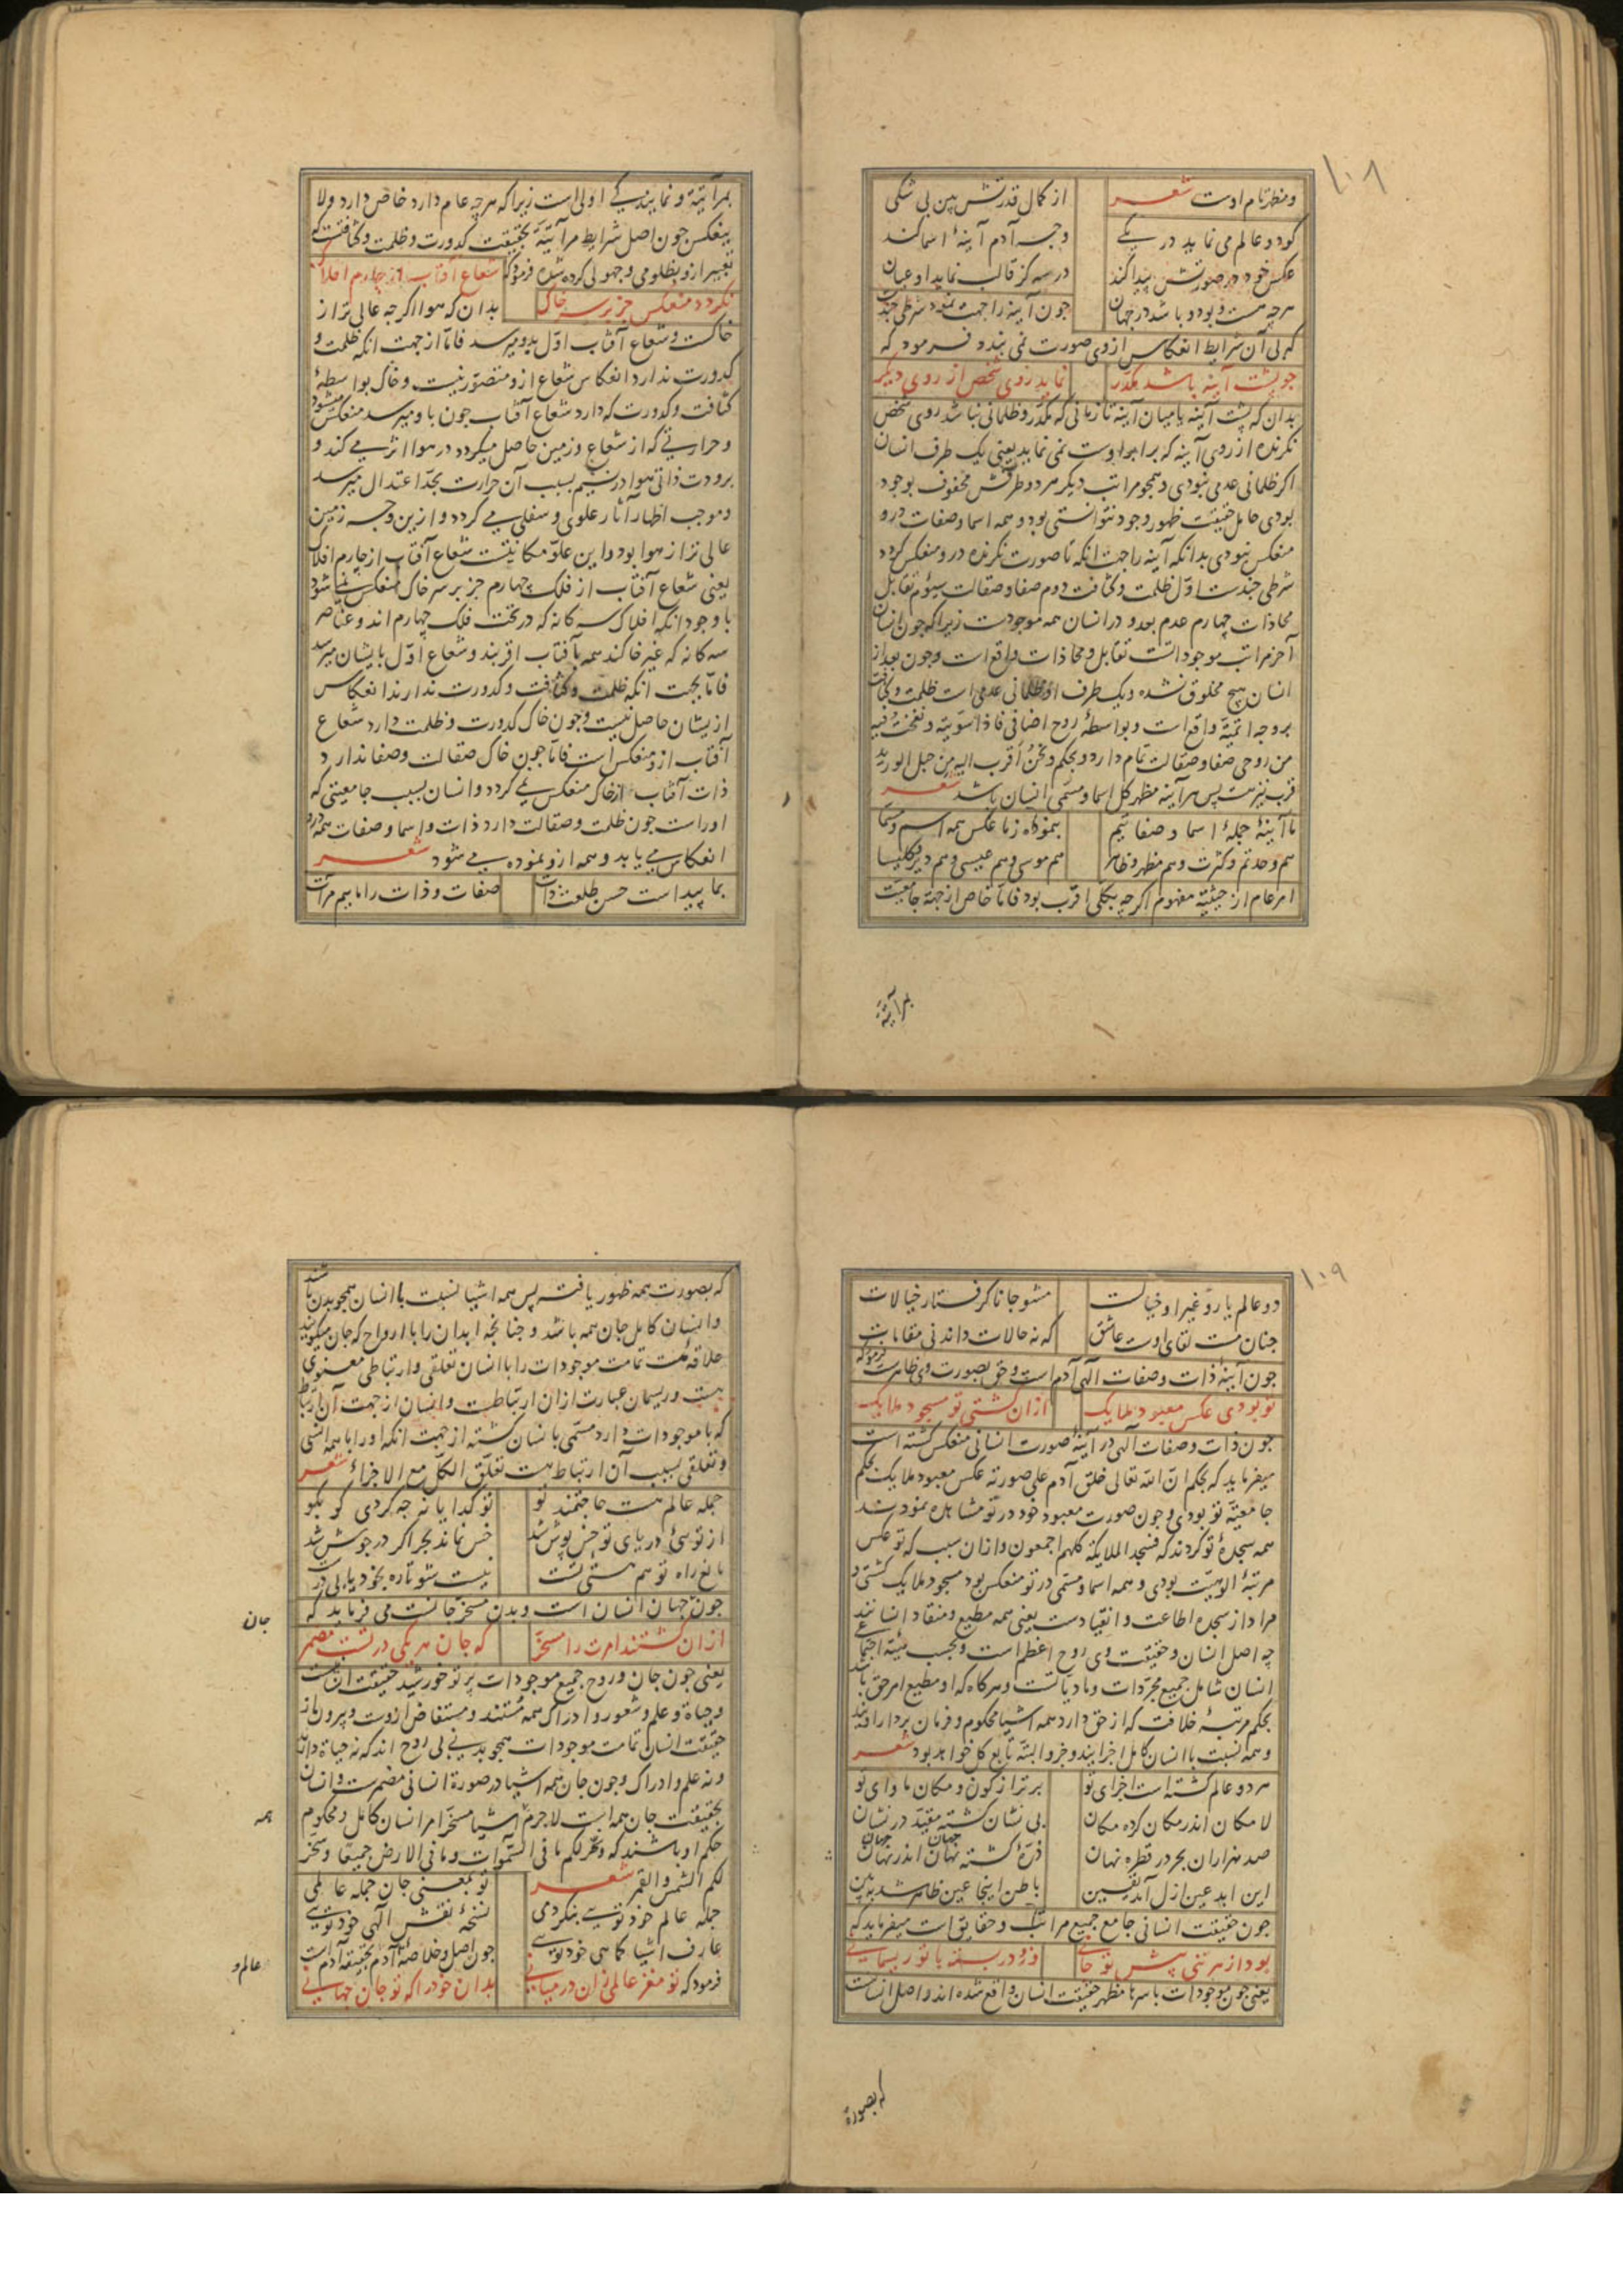 ۱۰۸
ومظهر تام اوست شعر
از کمال قدرتش بین بی شکی
کو دو عالم می نماید در یکی
وجه آدم آینهٔ اسما کند
عکس خود در صورتش پیدا کند
در سه کز قالب نماید او عیان
هرچه هست و بود و باشد در جهان
چون آینه را جهت نمود شرطی چندست
که بی آن شرایط انعکاس ازوی صورت نمی بندد فرمود که
چو پشت آینه باشد مکدر
نماید روی شخص از روی دیگر
بدان که پشت آینه یا میان آینه تا زمانی که مکدر و ظلمانی نباشد روی شخص
نکرنده از روی آینه که برابر اوست نمی نماید یعنی یک طرف انسان
اکر ظلمانی عدمی نبودی و همچو مراتب دیکر هر دو طرفش محفوف بوجود
بودی حامل حقیقت ظهور وجود نتوانستی بود و همه اسما و صفات درو
منعکس نبودی بدانکه آینه را جهت انکه تا صورت نکرنده درو منعکس کردد
شرطی چندست اول ظلمت و کثافت دوم صفا و صقالت سیوم تقابل
محاذات چهارم عدم بعد و در انسان همه موجودست زیرا که چون انسان
آخر مراتب موجوداتست تقابل و محاذات واقع است و چون بعد از
انسان هیچ مخلوق نشده و یک طرف او ظلمانی عدمی است ظلمت و کثافت
بر وجه اتمیّة واقع است و بواسطهٔ روح اضافی فاذا سوّیته و نفخت فیه
من روحی صفا و صقالت تمام دارد و بحکم و نحن اقرب الیه من حبل الورید
قرب نیز هست پس هر آینه مظهر کل اسما و مسمی انسان باشد شعر
ما آینهٔ جملهٔ اسما و صفاتیم
بنموده ز ما عکس همه اسم و مسما
هم وحدتم و کثرت و هم مظهر و ظاهر
هم موسی و هم عیسی و هم دیر و کلیسا
امر عام از حیثیة مفهوم اکر چه بکلی اقرب بود فاما خاص از جهة جامعیت
بمرآتیة
بمرآتیة و نمایندکی اولی است زیرا که هر چه عام دارد خاص دارد و لا
ینعکس چون اصل شرایط مرآتیّة بحقیقت کدورت و ظلمت و کثافتست که
تعبیر ازو بظلومی و جهولی کرده شده فرمود که
شعاع آفتاب از چارم افلاک
نکردد منعکس جز بر سر خاک
بدان که هوا اکر چه عالی تر از
خاکست و شعاع آفتاب اول بدو میرسد فاما از جهت انکه ظلمت و
کدورت ندارد انعکاس شعاع ازو متصور نیست و خاک بواسطهٔ
کثافت و کدورت که دارد شعاع آفتاب چون باو میرسد منعکس میشود
و حرارتی که از شعاع و زمین حاصل میکردد در هوا اثر می کند و
برودت ذاتی هوا در نسیم بسبب آن حرارت بحد اعتدال میرسد
و موجب اظهار آثار علوی و سفلی می کردد و ازین وجه زمین
عالی تر از هوا بود و این علو مکانیتست شعاع آفتاب از چارم افلاک
یعنی شعاع آفتاب از فلک چهارم جز بر سر خاک منعکس نمی شود
با وجود انکه افلاک سه کانه که در تحت فلک چهارم اند و عناصر
سه کانه که غیر خاکند همه بآفتاب اقربند و شعاع اول بایشان میرسد
فاما بجهت انکه ظلمت و کثافت و کدورت ندارند انعکاس
ازیشان حاصل نیست و چون خاک کدورت و ظلمت دارد شعاع
آفتاب ازو منعکس است فاما چون خاک صقالت و صفا ندارد
ذات آفتاب از خاک منعکس نمی کردد و انسان بسبب جامعیتی که
اوراست چون ظلمت و صقالت دارد ذات و اسما و صفات همه درو
انعکاس می یابد و همه ازو نموده می شود شعر
بما پیداست حسن طلعت ذات
صفات و ذات را ماییم مرآت
۱۰۹
دو عالم یار و غیر او خیالست
مشو جانا کرفتار خیالات
چنان مست لقای اوست عاشق
که نه حالات داند نی مقامات
چون آینهٔ ذات و صفات الهی آدم است و حق بصورت وی ظاهرست فرمود که
تو بودی عکس معبود ملایک
ازان کشتی تو مسجود ملایک
چون ذات و صفات الهی در آینهٔ صورت انسانی منعکس کشته است
میفرماید که بحکم ان الله تعالی خلق آدم علی صورته عکس معبود ملایک بحکم
جامعیّة تو بودی و چون صورت معبود خود در تو مشاهده نمودند
همه سجدهٔ تو کردند که فسجد الملایکة کلهم اجمعون و ازان سبب که تو عکس
مرتبهٔ الوهیت بودی و همه اسما و مسمی در تو منعکس بود مسجود ملایک کشتی و
مراد از سجده اطاعت و انقیادست یعنی همه مطیع و منقاد انسانند
چه اصل انسان و حقیقت وی روح اعظم است و بحسب هیئة اجتماعی
انسان شامل جمیع مجردات و مادیاتست و هرکاه که او مطیع امر حق باشد
بحکم مرتبهٔ خلافت که از حق دارد همه اشیا محکوم و فرمان بردار اویند
و همه نسبت با انسان کامل اجزایند و جزو البتّه تابع کل خواهد بود شعر
هر دو عالم کشته است اجزای تو
برتر از کون و مکان ماوای تو
لا مکان اندر مکان کرده مکان
بی نشان کشته مقید در نشان
صد هزاران بحر در قطره نهان
ذرهٔ کشته جهان اندر جهان
این ابد عین ازل آمد یقین
باطن اینجا عین ظاهر شد ببین
چون حقیقت انسانی جامع جمیع مراتب و حقایق است میفرماید که
بود از هر تنی پیش تو جانی
وزو در بسته با تو ریسمانی
یعنی چون موجودات باسرها مظهر حقیقت انسان واقع شده اند و اصل انسانست
که بصورة
که بصورت همه ظهور یافته پس همه اشیا نسبت با انسان همچو بدن باشند
و انسان کامل جان همه باشد و چنانچه ابدان را با ارواح که جان میکویند
علاقه هست تمامت موجودات را با انسان تعلقی و ارتباطی معنوی
هست و ریسمان عبارت ازان ارتباطست و انسان از جهت آن ارتباط
که با موجودات دارد مسمی بانسان کشته از جهت انکه اورا با همه انسی
و تعلقی بسبب آن ارتباط هست تعلق الکل مع الاجزاء شعر
جمله عالم هست حاجتمند تو
تو کدایانه چه کردی کو بکو
از تو سئ دریای تو خس پوش شد
خس نماند بحر اکر در جوش شد
مانع راه تو هم هستی تست
نیست شو تا ره بخود یابی درست
چون جهان انسان است و بدن مسخر جانست می فرماید که
جان
ازان کشتند امرت را مسخر
که جان هر یکی در تست مضمر
یعنی چون جان و روح جمیع موجودات پرتو خورشید حقیقت انسانست
و حیاة و علم و شعور و ادراک همه مستند و مستفاض ازوست و بیرون از
حقیقت انسان تمامت موجودات همچو بدنی بی روح اند که نه حیاة دارند
و نه علم و ادراک و چون جان همه اشیا در صورة انسانی مضمرست و انسان
بحقیقت جان همه است لاجرم اشیا مسخر امر انسان کامل و محکوم
همه
حکم او باشند که و سخر لکم ما فی السموات و ما فی الارض جمیعا و سخر
لکم الشمس و القمر شعر
تو بمعنی جان جمله عالمی
جمله عالم خود تویی بنکر دمی
نسخهٔ نقش الهی خود تویی
عارف اشیا کما هی خود تویی
چون اصل و خلاصهٔ آدم بحقیقة آدم است
عالم و
فرمود که تو مغز عالمی زان در میانی
بدان خود را که تو جان جهانی